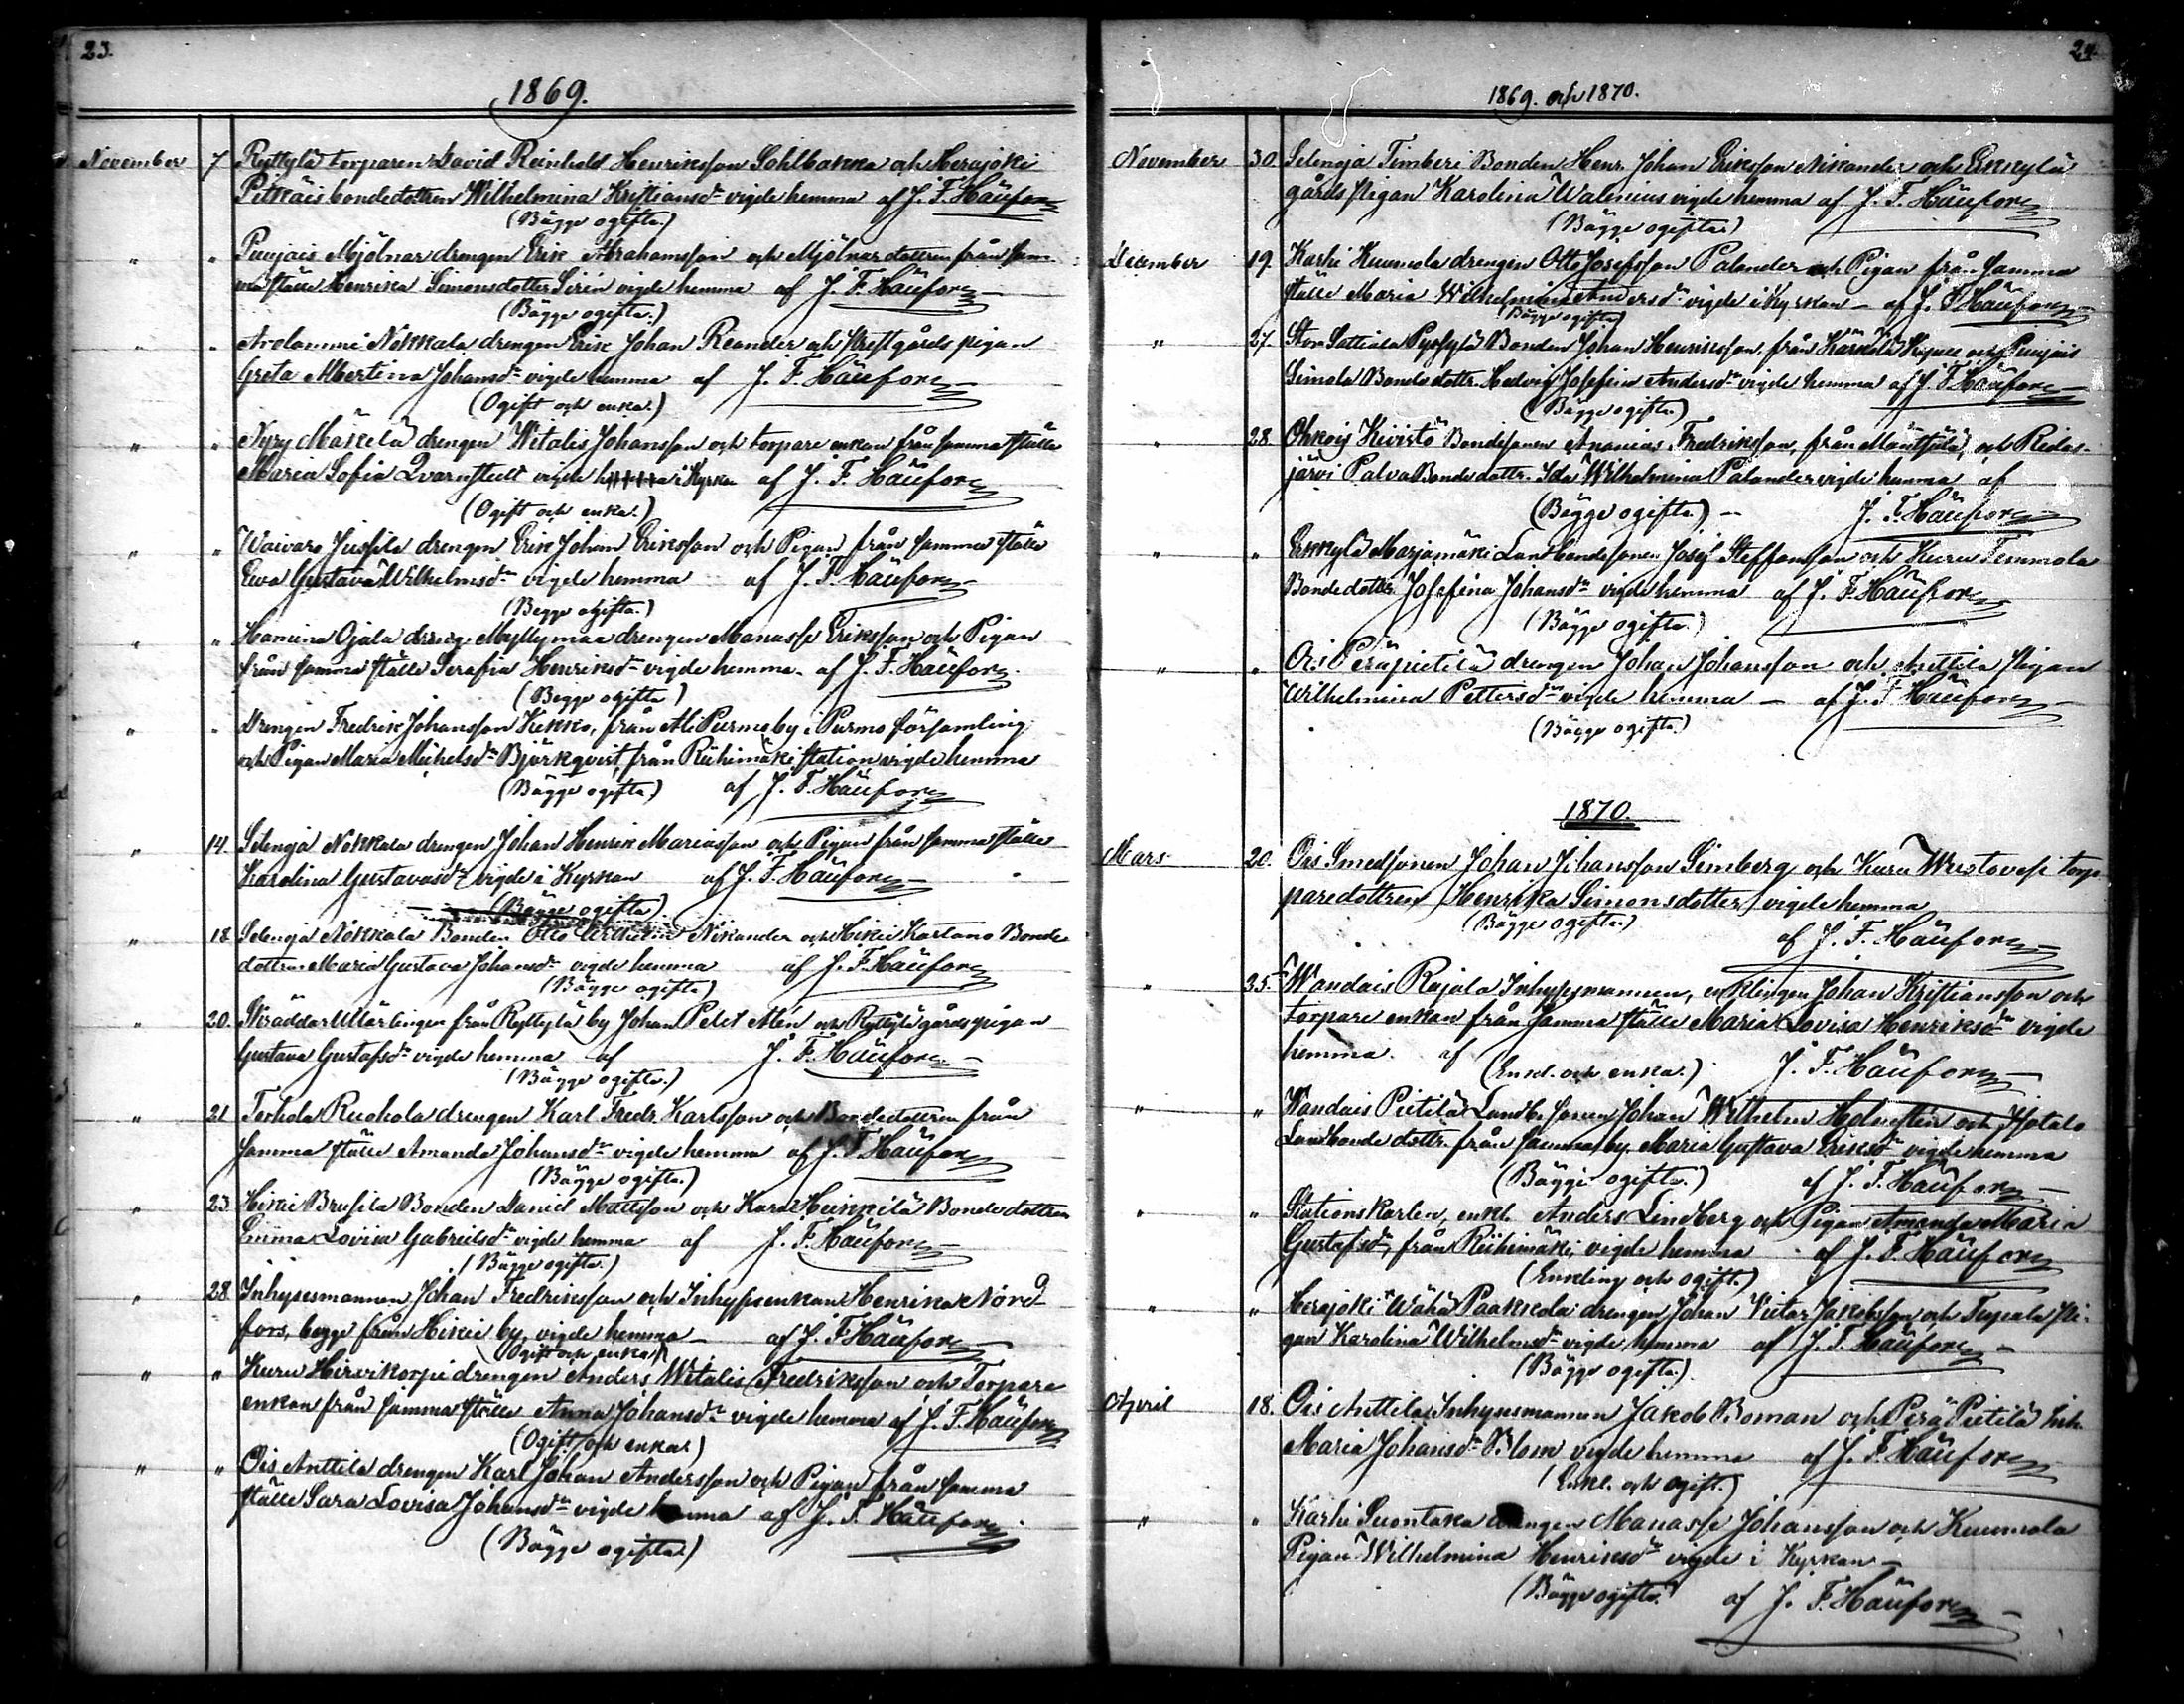 23.
1869.
November 7 Ryttylä torparen David Reinhold Henriksson Sohlbakka och Herajoki
Pitkäis bondedottren Wilhelmina Kristiansdr vigde hemma af J. F. Häufors
(Bägge ogifta.)
" " Puujais Mjölnar drengen Erik Abrahamsson och Mjölnar dottren från sam-
ma ställe Henrika Simonsdotter Sirén vigde hemma af J. F. Häufors
(Bägge ogifta.)
" " Arolammi Nokkala drengen Erik Johan Reander och pigan
Greta Albertina Johansdr vigde hemma af J. F. Häufors
(Ogift och enka.)
" " Nyry Mäkelä drengen Witalis Johansson och torpare enkan från samma ställe
Maria Sofia Qvarnstedt vigde i Kyrkan af J. F. Häufors
(Ogift och enka.)
" " Waivaro Jussila drengen Erik Johan Eriksson och Pigan från samma ställe
Ewa Gustava Wilhelmsdr vigde hemma af J. F. Häufors
(Begge ogifta.)
" " Ojala Myllymaa drengen Manasse Eriksson och Pigan
från samma ställe Serafia Henriksdr vigde hemma af J. F. Häufors
(Begge ogifta)
" " Drengen Fredrik Johansson Kekko, från Ali Purmo by i Purmo församling
och Pigan Maria Michelsdr Björkqvist, från Riihimäki station vigde hemma
(Bägge ogifta.) af J. F. Häufors
" 14. Selenjä Nokkala drengen Johan Henrik Mariasson och Pigan från samma ställe
Karolina Gustavasdr vigde i Kyrkan af J. F. Häufors
(Bägge ogifta)
" 18 Selenjä Nokkala Bonden Otto Wilhelm Nikander och Hikiä Kartano Bonde
dottren Maria Gustava Johansdr vigde hemma af J. F. Häufors
(Bägge ogifta)
" 20. Skräddar Lärlingen från Ryttylä by Johan Petet Alén och Ryttylä gårds pigan
Gustava Gustafsdr vigde hemma af J. F. Häufors
(Bägge ogifta.)
" 21 Torhola Ruohola drengen Karl Fredr. Karlsson och Bondedottren från
samma ställe Amanda Johansdr vigde hemma af J. F. Häufors
(Bägge ogifta.)
" 23 Hikiä Brusila Bonden Daniel Mattsson och Kara Heikkilä Bonde dottren
Emma Lovisa Gabrielsdr vigde hemma af J. F. Häufors
(Bägge ogifta.)
" 28 Inhysesmannen Johan Fredriksson och Inhyses enkan Henrika Nord-
fors, begge från Hikiä by, vigde hemma af J. F. Häufors
(Ogift och enka)
" " Kuru Hirvikorpi drengen Anders Witalis Fredriksson och Torpare
enkan från samma ställe Anna Johansdr vigde hemma af J. F. Häufors
(Ogift och enka)
" " Ois Anttila drengen Karl Johan Andersson och Pigan från samma
ställe Sara Lovisa Johansdr vigde hemma af J. F. Häufors
(Bägge ogifta)
24.
1869. och 1870.
November 30. Selenjä Timberi Bonden Henr. Johan Eriksson Nikander och Erkkylä
gårds pigan Karolina Walenius vigde hemma af J. F. Häufors
(Bägge ogifta)
December 19. Karhi Kuumola drengen Otto Josefsson Palander och Pigan från samma
ställe Maria Wilhelmina Andersdr vigde i Kyrkan af J. F. Häufors
(Bägge ogifta)
" 27. Stor Sattiala Pyöfylä Bonden Johan Henriksson, från Kärkölä och Puujais
Simola Bonde dottr. Hedvig Josefin Andersdr vigde hemma af J. F. Häufors
(Bägge ogifta)
" 28. Ohkois Kivistö Bondesonen Ananias Fredriksson, från Mäntsälä, och Ridas-
järvi Palva Bonde dottr. Ida Wilhelmina Palander vigde hemma af
(Bägge ogifta) J. F. Häufors
" " Erkkylä Marjamäki Landbondesonen Josef Steffansson och Kuru Temmola
Bonde dottr. Josefina Johansdr vigde hemma af J. F. Häufors
(Bägge ogifta.)
" " Ois Peräpietilä drengen Johan Johansson och Anttila pigan
Wilhelmina Pettersdr vigde hemma af J. F. Häufors
(Bägge ogifta.)
1870.
Mars 20. Ois Smedsonen Johan Johansson Simberg och Kuru torp-
paredottren Henrika Simonsdotter vigde hemma
(Bägge ogifta.) af J. F. Häufors
" 25. Wandais Rajala Inhysesmannen, enklingen Johan Kristiansson och
torpare enkan från samma ställe Maria Lovisa Henriksdr vigde
hemma af (Enkl. och enka.) J. F. Häufors
" " Wandais Pietilä Landb. sonen Johan Wilhelm Holmsten och Isotalo
Landbonde dottr. från samma by. Maria Gustava Eriksdr vigde hemma
(Bägge ogifta.) af J. F. Häufors
" " Stationskarlen, enkl. Anders Lindberg och Pigan Amanda Maria
Gustafsdr, från Riihimäki, vigde hemma af J. F. Häufors
(Enkling och ogift.)
" " Herajoki Wähä Paakkola drengen Johan Viktor Jakobsson och pi-
gan Karolina Wilhelmsdr vigde hemma af J. F. Häufors
(Bägge ogifta.)
April 18. Ois Anttila Inhysesmannen Jakob Boman och Perä Pietilä Inh.
Maria Johansdr Blom vigde hemma af J. F. Häufors
(Enkl. och ogift.)
" " Karhi Suontaka drengen Manasse Johansson och Kuumola
Pigan Wilhelmina Henriksdr vigde i Kyrkan
(Bägge ogifta. af J. F. Häufors